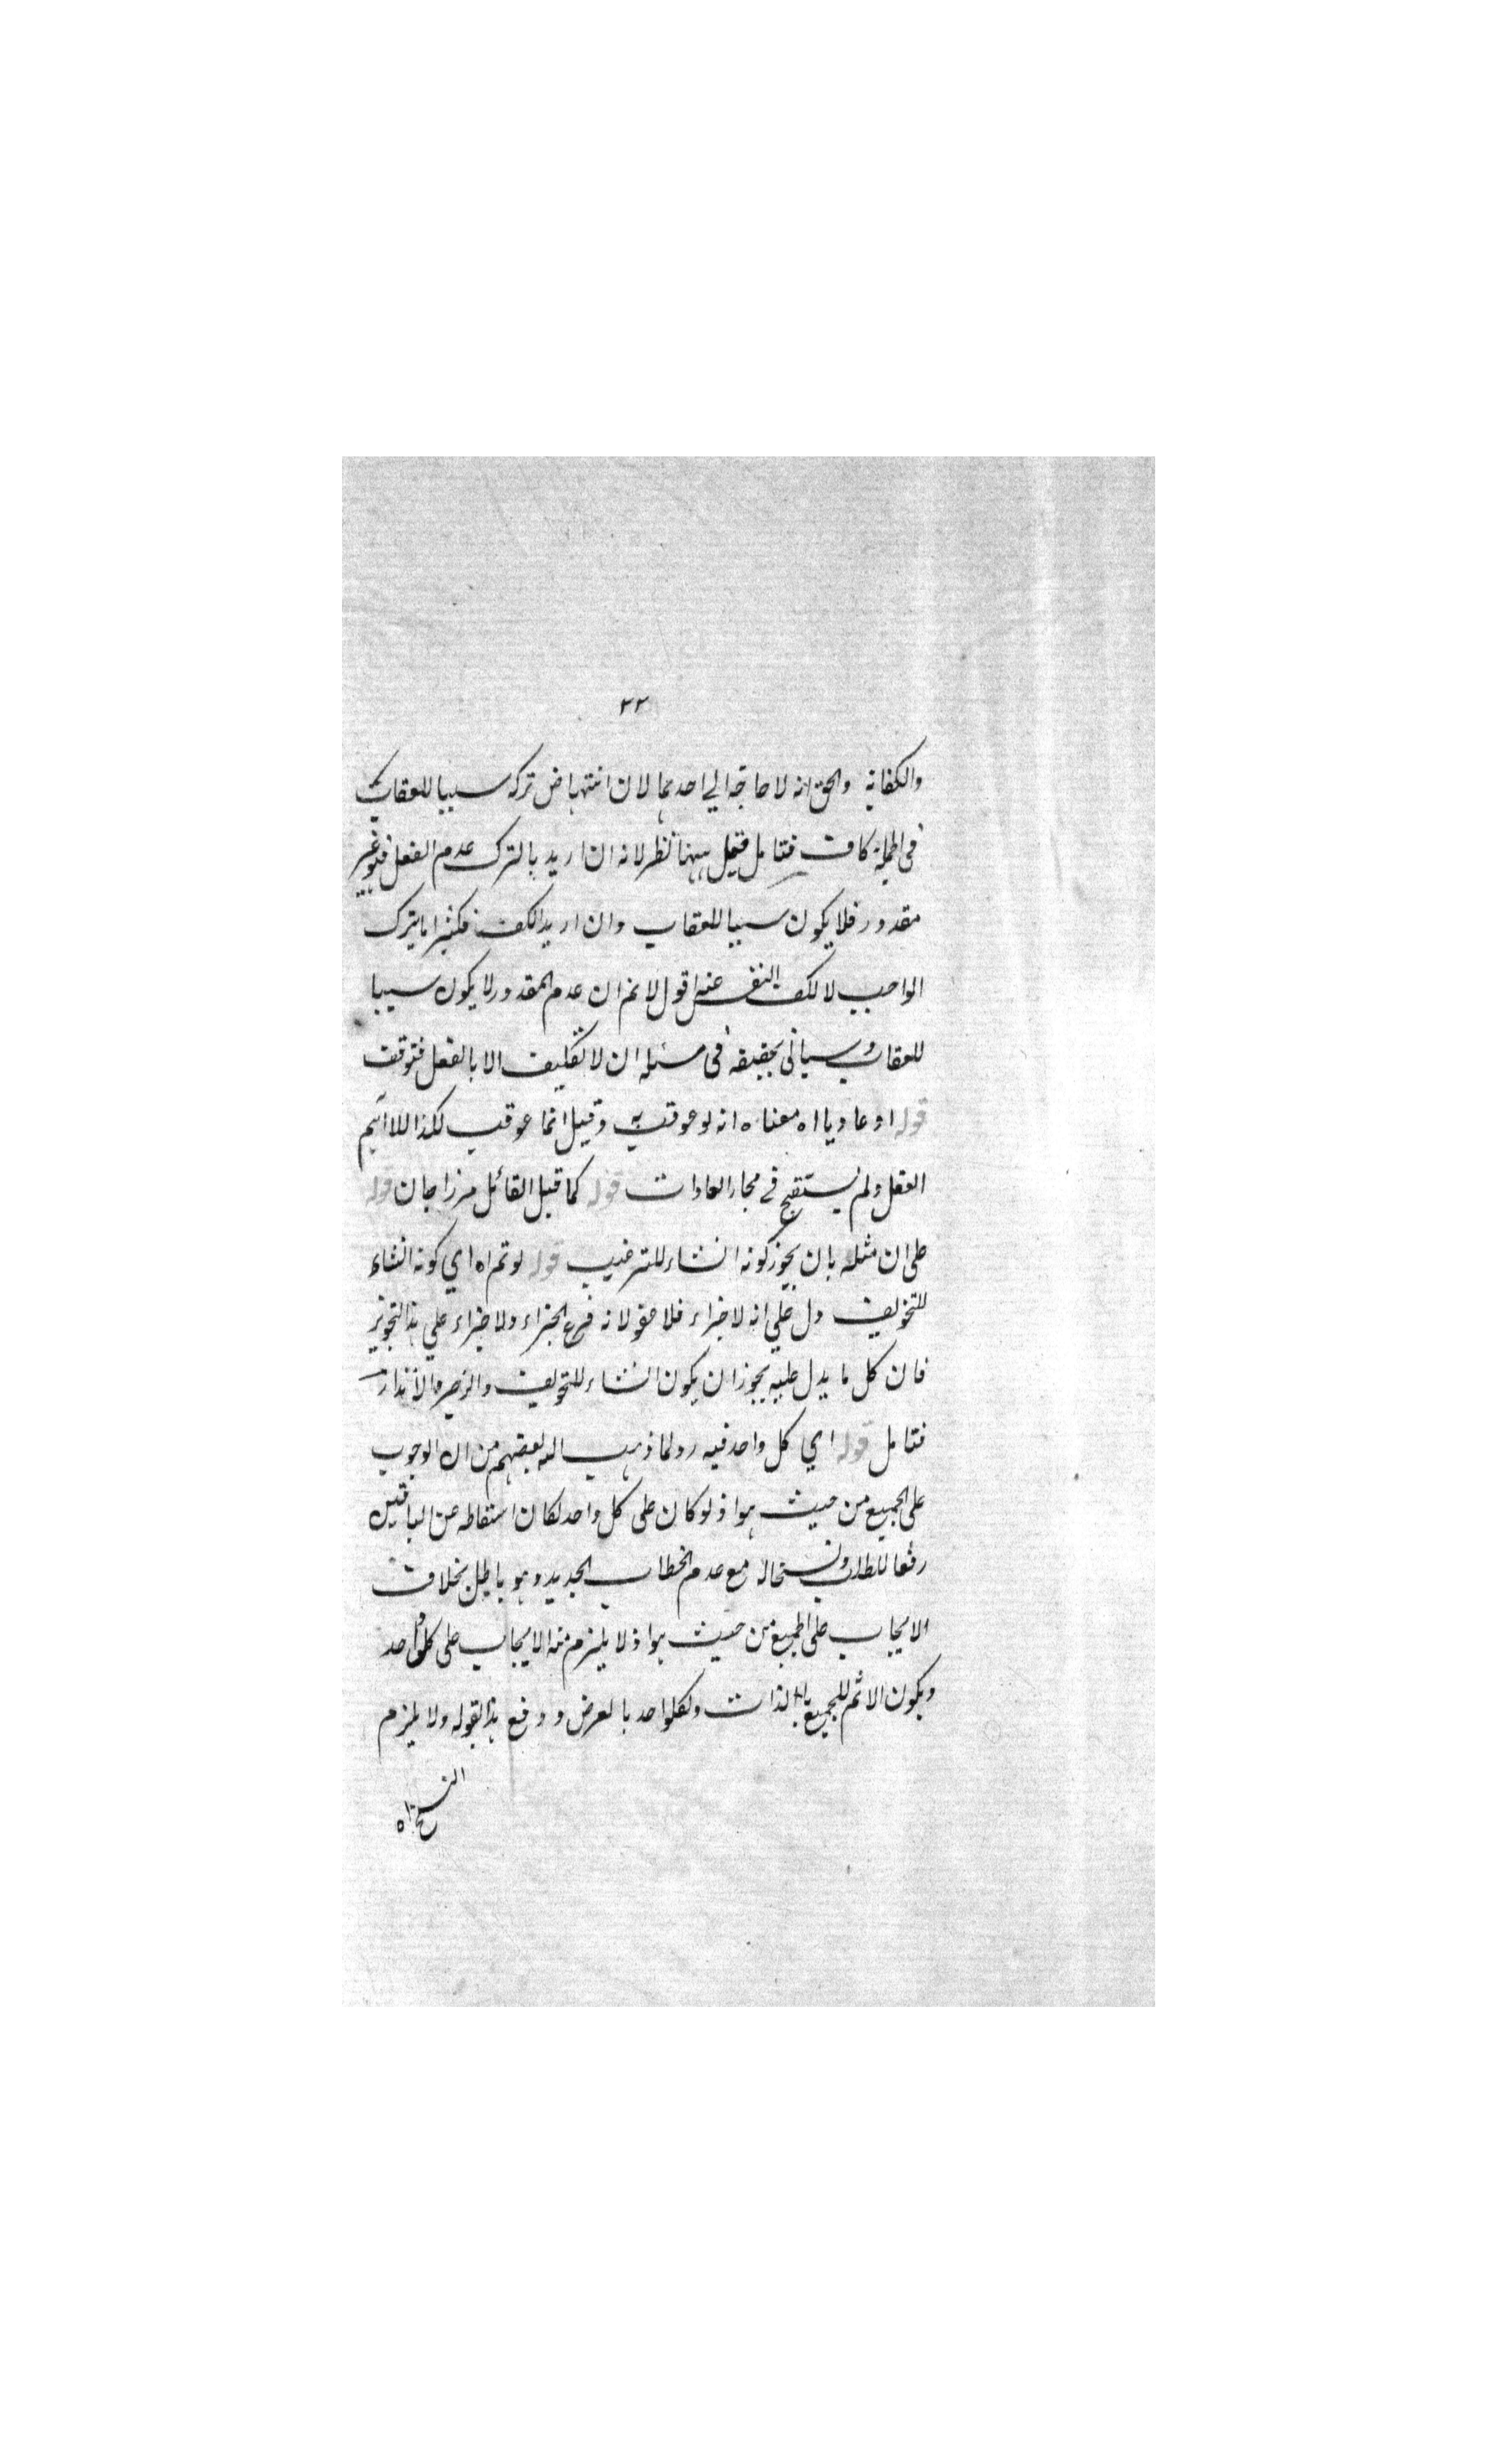 ٣٣
والكفاية والحق انه لا حاجة الي احدهما لان انتهاض تركه سببا للعقاب
في الجملة كاف فتامل قيل ههنا نظر لانه ان اريد بالترك عدم الفعل فهو غير
مقدور فلا يكون سببا للعقاب وان اريد الكف فكثيرا ما يترك
الواجب لا لكف النفس عنه اقول لا نم ان عدم المقدور لا يكون سببا
للعقاب وسياتي تحقيقه في مسئلة ان لا تكليف الا بالفعل فتوقف
قوله او عاديا اه معناه انه لو عوقب به وقيل انما عوقب لكذا
العقل ولم يستقبح في مجار العادات قوله كما قيل القائل مرزا جان قوله
على ان مثله بان يجوز كونه انشاء للترغيب قوله لو تم اه اي كونه انشاء
للتخويف دل علي انه لا جزاء فلا عفو لانه فرع الجزاء ولا جزاء علي هذا التجويز
فان كل ما يدل عليه يجوز ان يكون انشاء للتخويف والزجر والانذار
فتامل قوله اي كل واحد فيه رد لما ذهب اليه بعضهم من ان الوجوب
على الجميع من حيث هو اذ لو كان على كل واحد لكان اسقاطه عن الباقين
رفعا للطلب ونسخا له مع عدم الخطاب الجديد وهو باطل بخلاف
الايجاب على الجميع من حيث هو اذ لا يلزم منه الايجاب على كل واحد
ويكون الاثم للجميع بالذات ولكل واحد بالعرض ودفع هذا بقوله ولا يلزم
النسخ اه